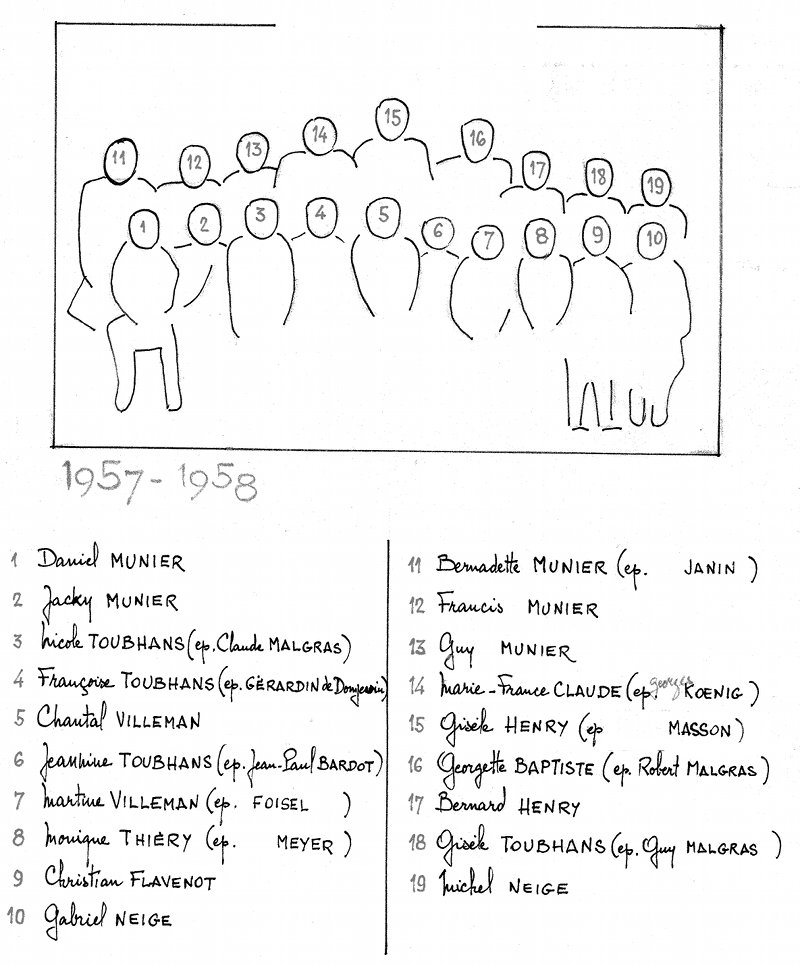 15
14
16
13
11
12
17
18
19
3
4
5
2
1
6
7
8
9
10
1957-1958
1 Daniel MUNIER
2 Jacky MUNIER
3 Nicole TOUBHANS (ep. Claude MALGRAS)
4 Françoise TOUBHANS (ep. GÉRARDIN de Domjevin)
5 Chantal VILLEMAN
6 Jeannine TOUBHANS (ep. Jean-Paul BARDOT)
7 Martine VILLEMAN (ep. FOISEL )
8 Monique THIÉRY (ep. MEYER )
9 Christian FLAVENOT
10 Gabriel NEIGE
11 Bernadette MUNIER (ep. JANIN )
12 Francis MUNIER
13 Guy MUNIER
14 Marie-France CLAUDE (ep. georges KOENIG )
15 Gisèle HENRY (ep MASSON )
16 Georgette BAPTISTE (ep. Robert MALGRAS )
17 Bernard HENRY
18 Gisèle TOUBHANS (ep. Guy MALGRAS )
19 Michel NEIGE